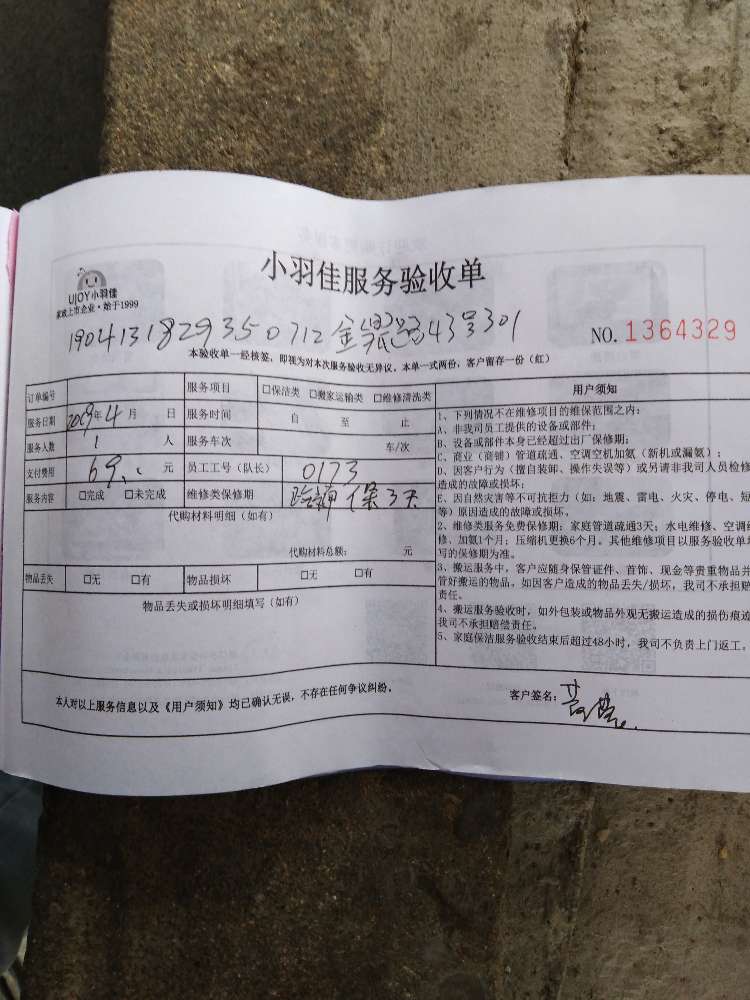 UJOY小羽佳
家政上市企业·始于1999
小羽佳服务验收单
190413182935071 2 金 路43号301
NO.1364329
本验收单一经核签，即视为对本次服务验收无异议，本单一式两份，客户留存一份（红）
订单编号 服务项目 □保洁类 □搬家运输类 □维修清洗类
服务日期 2019年4月 日 服务时间 自 至 止
服务人数 1 人 服务车次 车/次
支付费用 69. 元 员工工号（队长） 0173
服务内容 □完成 □未完成 维修类保修期 保3天
代购材料明细（如有）
代购材料总额： 元
物品丢失 □无 □有 物品损坏 □无 □有
物品丢失或损坏明细填写（如有）
用户须知
1、下列情况不在维修项目的维保范围之内：
A、非我司员工提供的设备或部件；
B、设备或部件本身已经超过出厂保修期；
C、商业（商铺）管道疏通、空调空机加氨（新机或漏氨）；
D、因客户行为（擅自装卸、操作失误等）或另请非我司人员检修
造成的故障或损坏；
E、因自然灾害等不可抗拒力（如：地震、雷电、火灾、停电、短
等）原因造成的故障或损坏。
2、维修类服务免费保修期：家庭管道疏通3天；水电维修、空调维
修、加氨1个月；压缩机更换6个月。其他维修项目以服务验收单填
写的保修期为准。
3、搬运服务中，客户应随身保管证件、首饰、现金等贵重物品并
管好搬运的物品，如因客户造成的物品丢失/损坏，我司不承担赔
责任。
4、搬运服务验收时，如外包装或物品外观无搬运造成的损伤痕迹
我司不承担赔偿责任。
5、家庭保洁服务验收结束后超过48小时，我司不负责上门返工。
本人对以上服务信息以及《用户须知》均已确认无误，不存在任何争议纠纷。
客户签名：